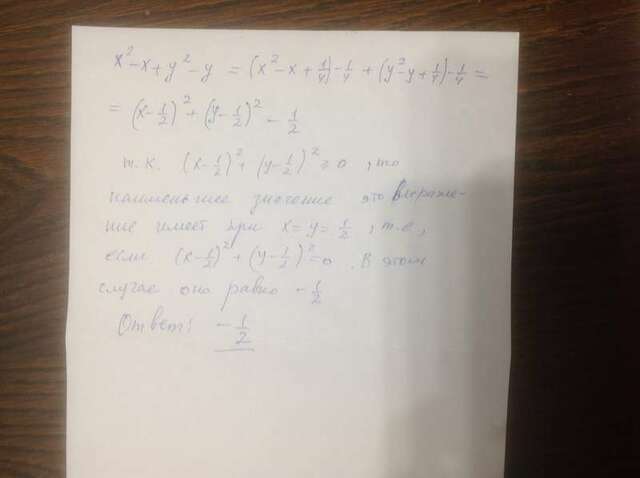 x² - x + y² - y = (x² - x + 1/4) - 1/4 + (y² - y + 1/4) - 1/4 =
= (x - 1/2)² + (y - 1/2)² - 1/2
т.к. (x - 1/2)² + (y - 1/2)² ≥ 0, то
наименьшее значение это выраже-
ние имеет при x = y = 1/2, т.е.,
если (x - 1/2)² + (y - 1/2)² = 0. В этом
случае оно равно - 1/2
Ответ: - 1/2